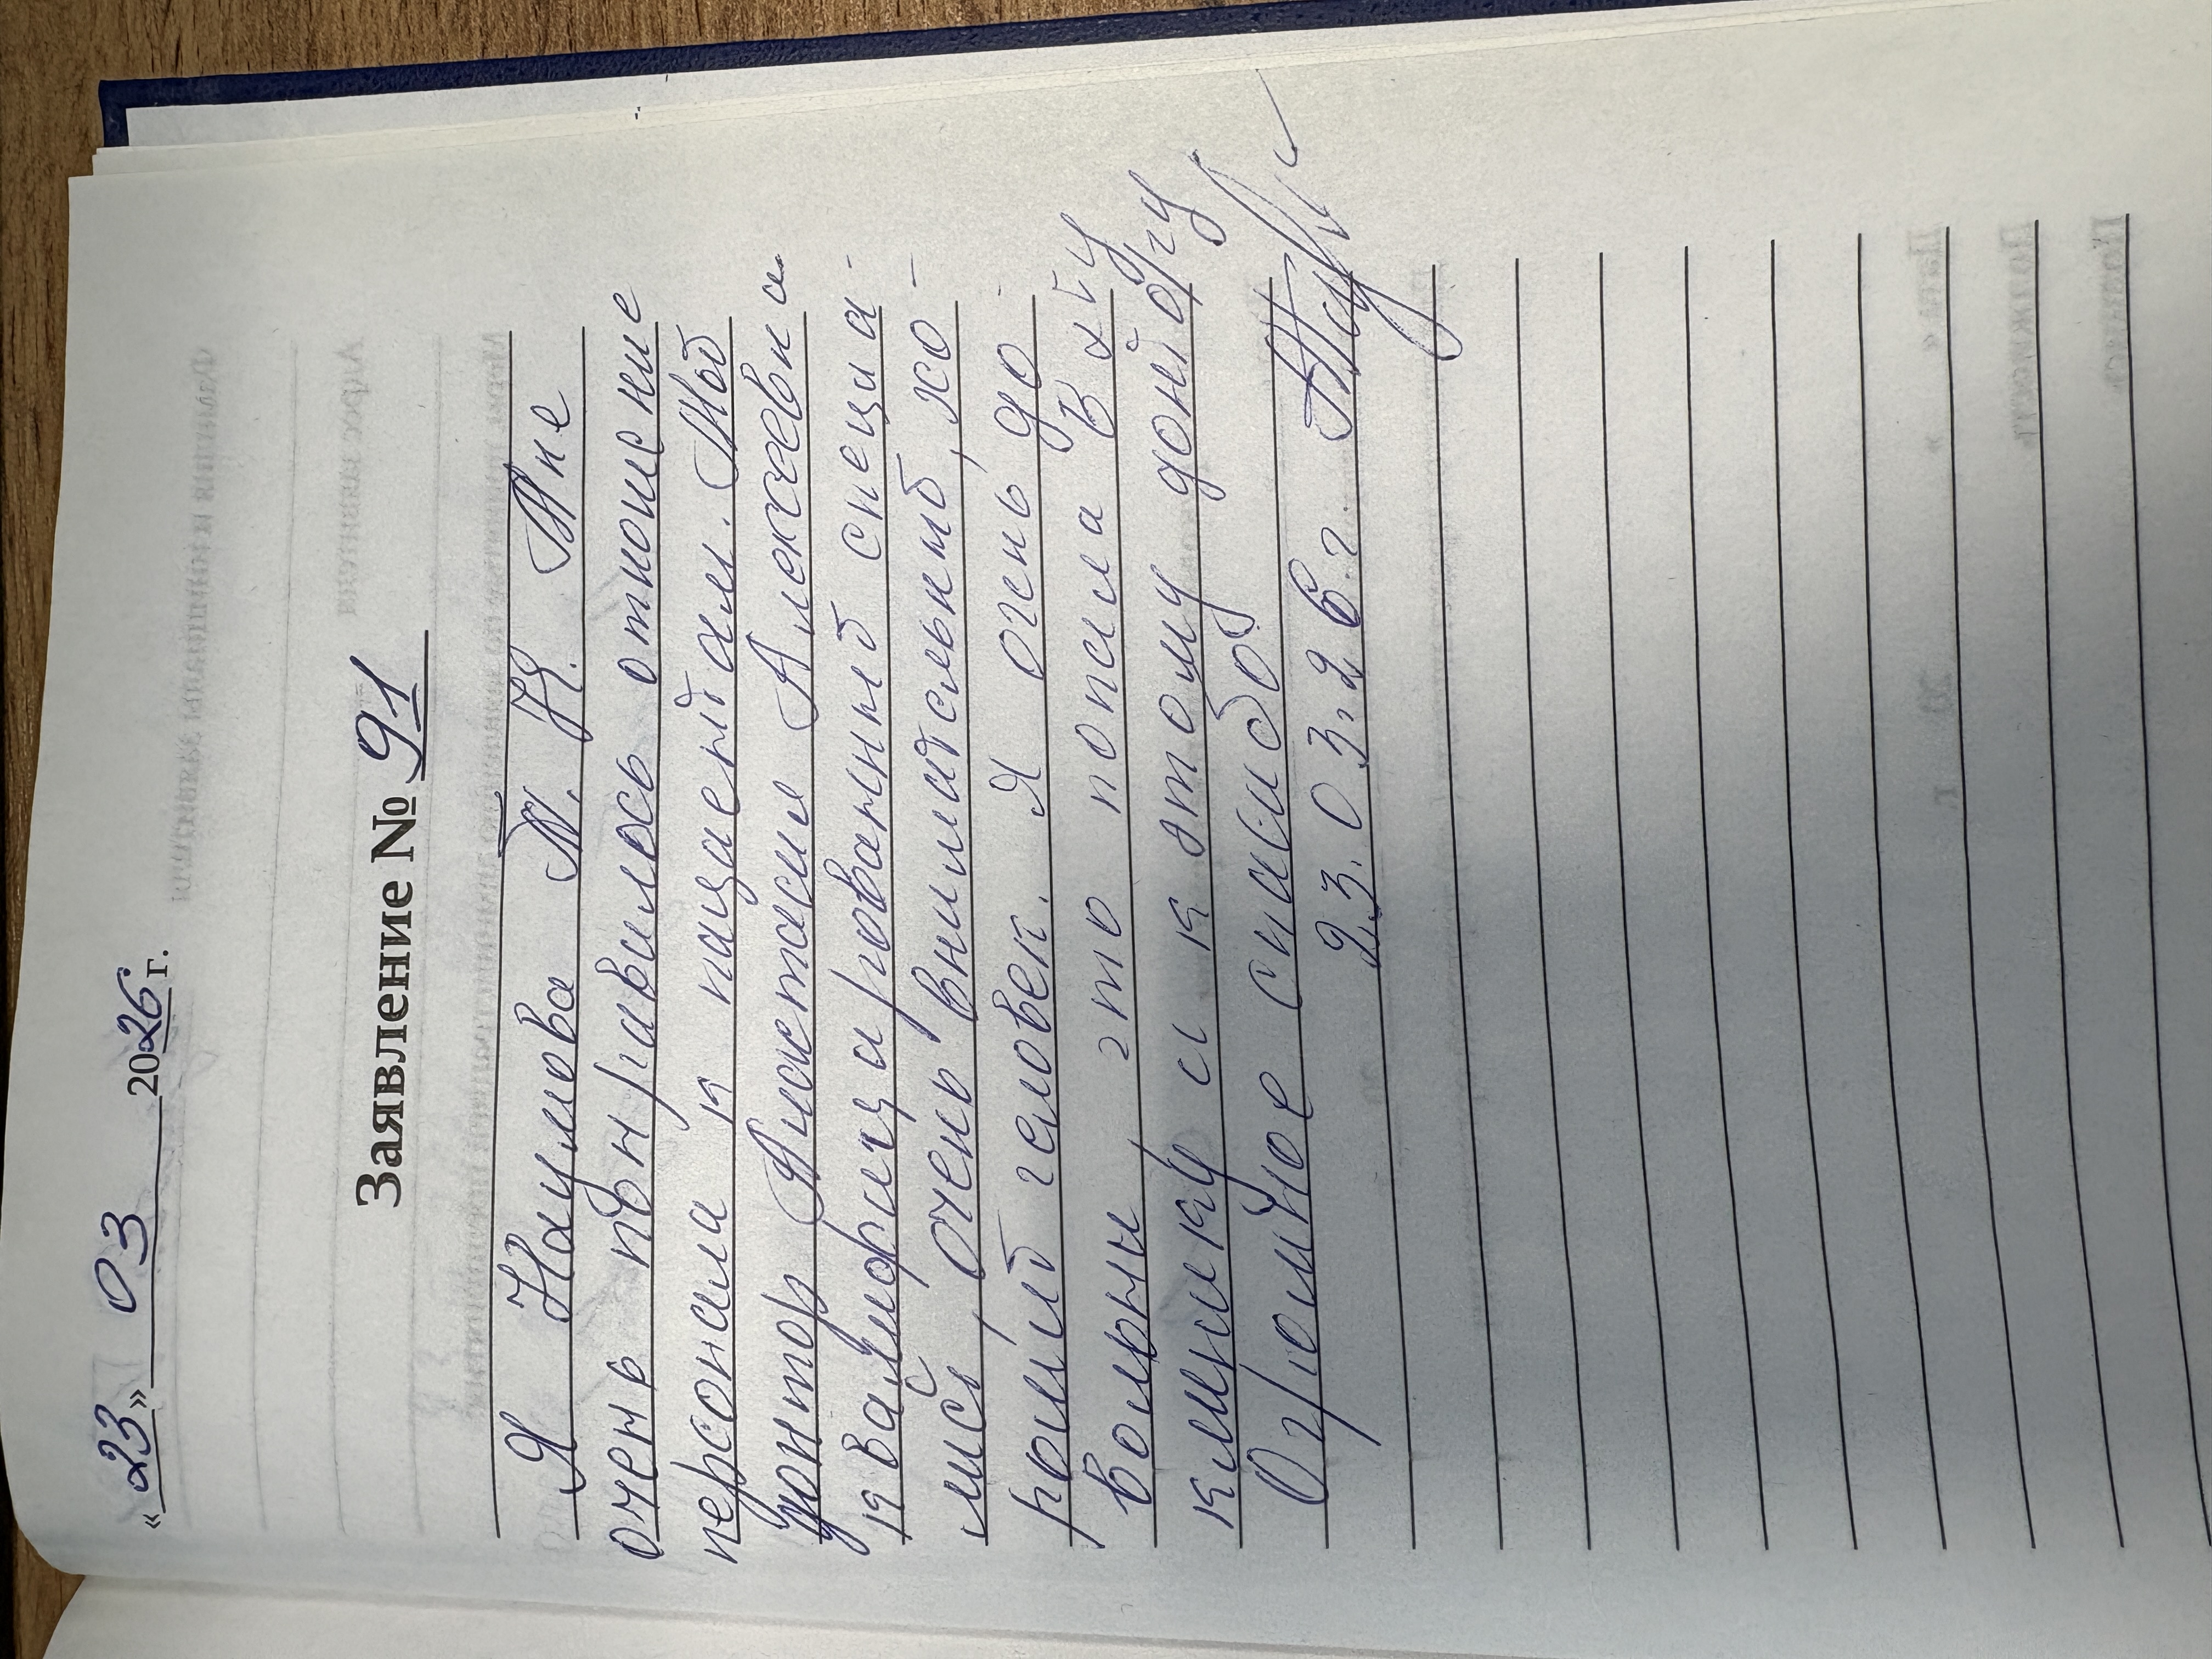 « 23 » 03 2026 г.
Заявление № 91
Я Наумова М. Н. Мне
очень понравилось отношение
персонала к пациентам. Мой
доктор Анастасия Алексеевна
квалифицированный специа-
лист, очень внимательный, хо-
роший человек. Я очень до
вольна, что попала в эту
клинику и к этому доктору
Огромное спасибо!
23.03.26.г.